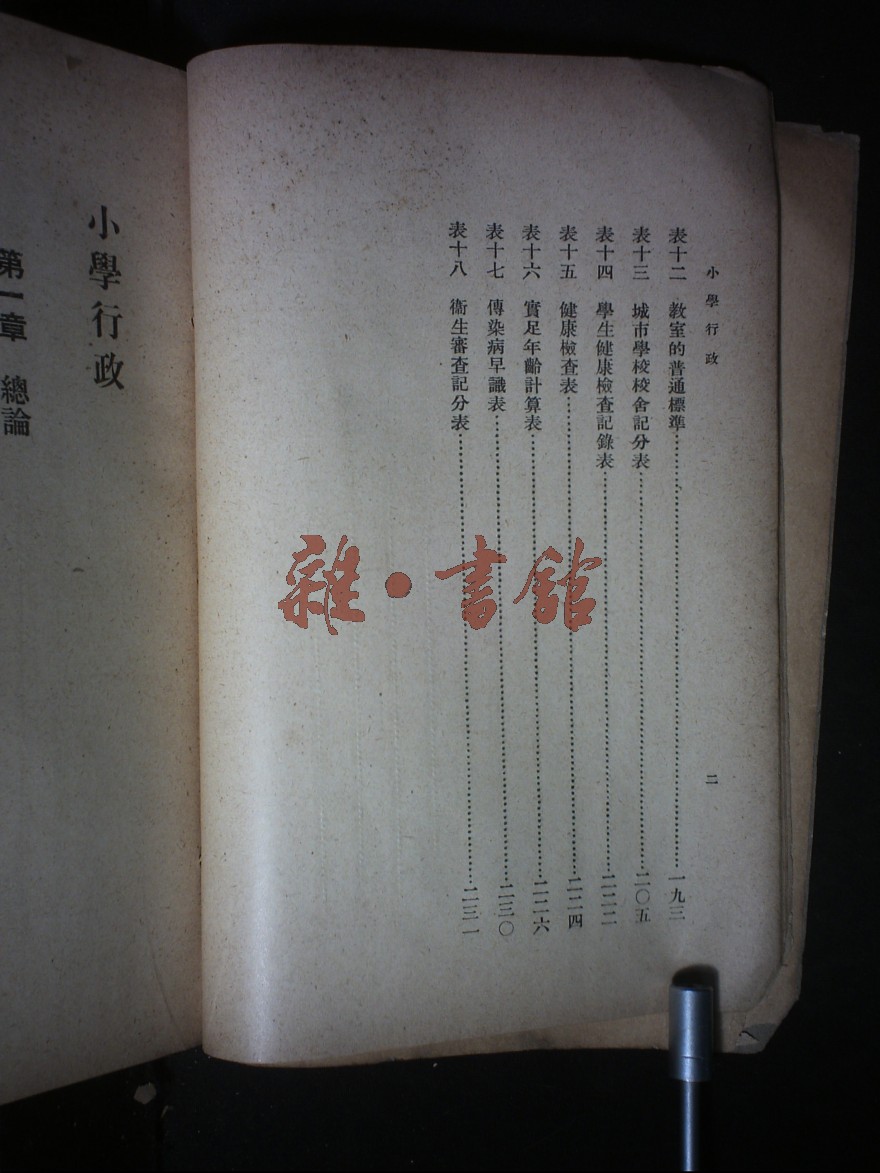 小學行政
二
表十二　教室的普通標準………一九三
表十三　城市學校校舍記分表………二〇五
表十四　學生健康檢查記錄表………二二二
表十五　健康檢查表………二二四
表十六　實足年齡計算表………二二六
表十七　傳染病早識表………二三〇
表十八　衞生審查記分表………二三一
小學行政
第一章　總論
雜・書館